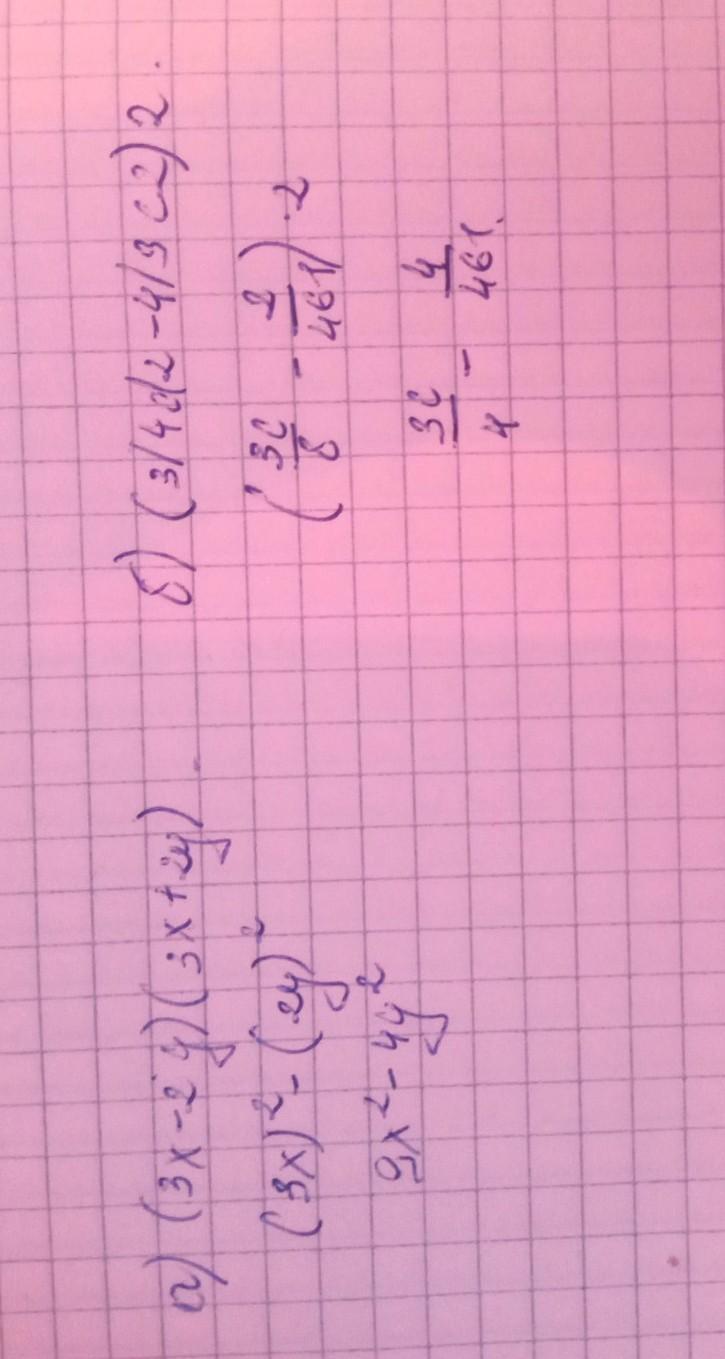 а) (3x-2y)(3x+2y)
(3x)²-(2y)²
9x²-4y²
б) (3/4d2-4/3c2)2.
(3c/8 - 2/461)·2
3c/4 - 4/461.